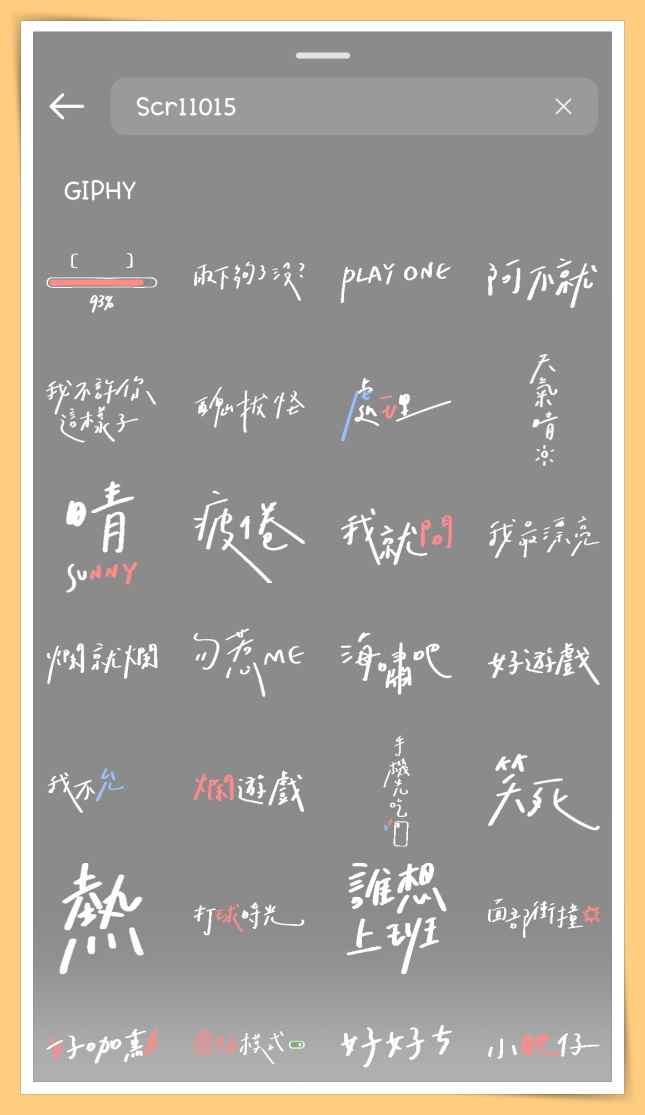 Scr11015
GIPHY
[ ]
93%
雨下夠了沒?
PLAY ONE
阿不就
我不許你
這樣子
醜拔怪
處理
天氣晴
晴
SUNNY
疲倦
我就悶
我最漂亮
爛就爛
勿惹ME
海嘯吧
好遊戲
我不允
爛遊戲
手機先吃
笑死
熱
打球時光
誰想
上班
面部衝撞
好咖
模式
好好ㄘ
小肥仔